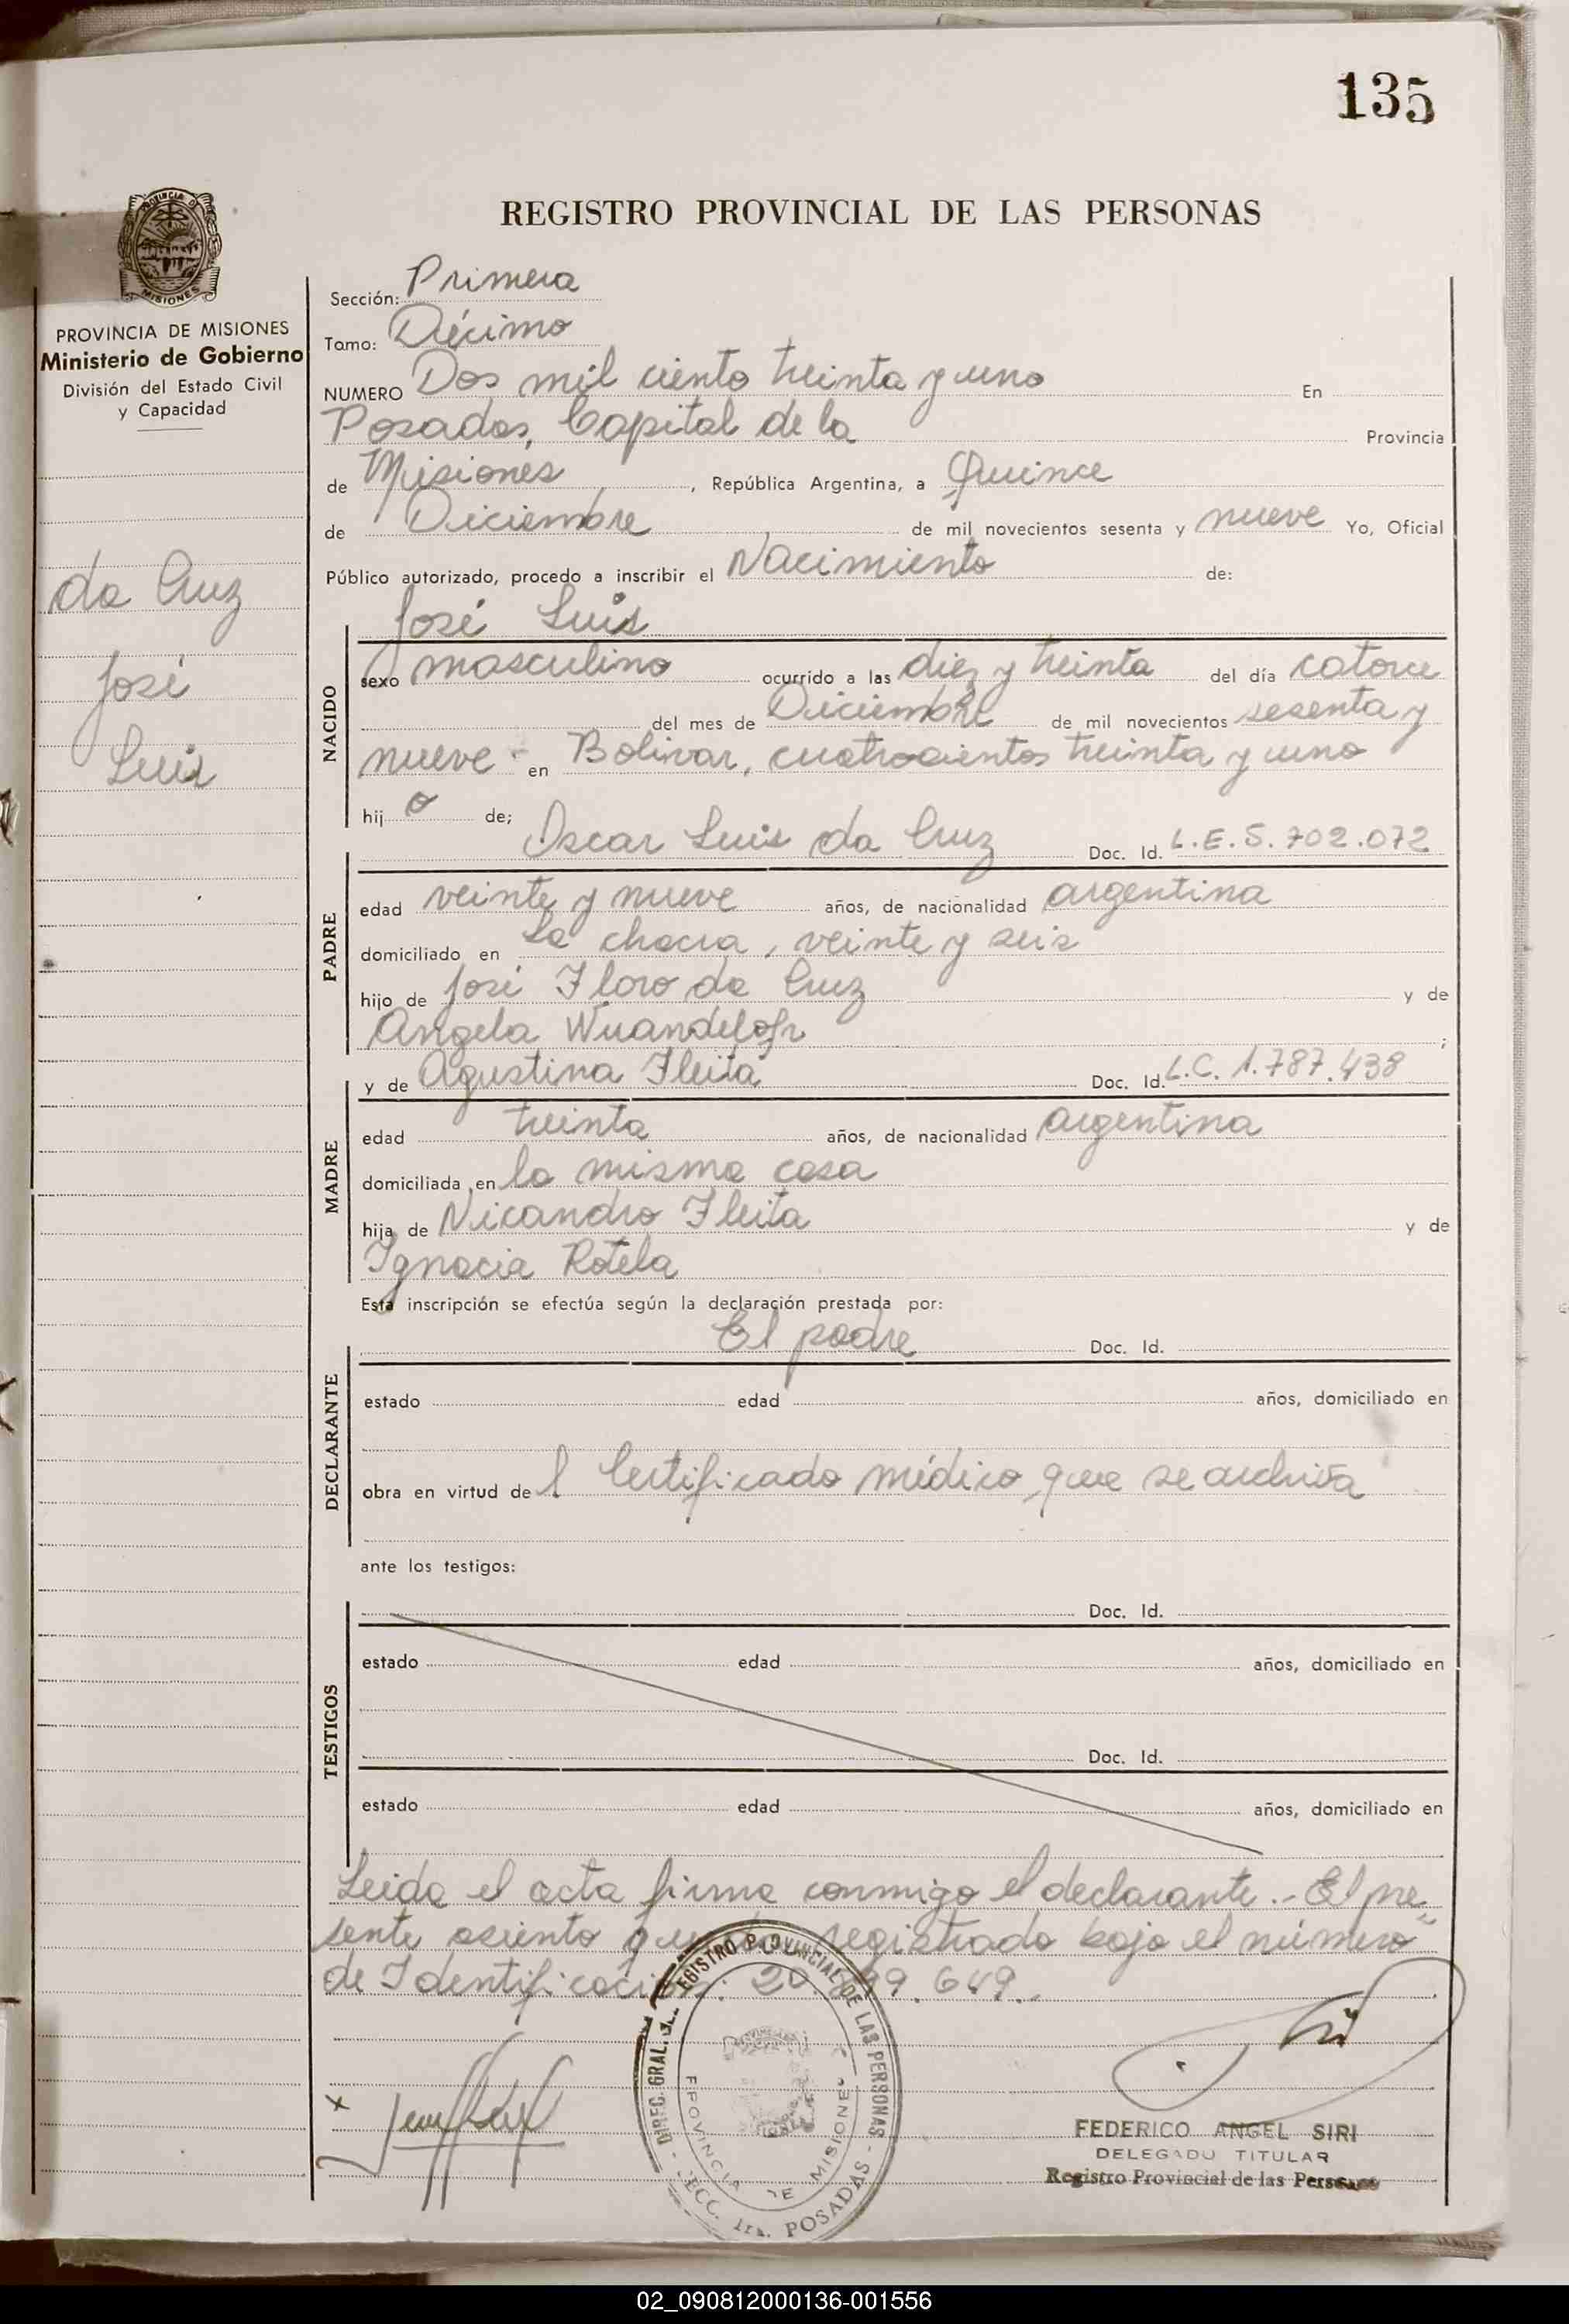 135
PROVINCIA DE MISIONES
Ministerio de Gobierno
División del Estado Civil
y Capacidad
da Cruz
José
Luis
REGISTRO PROVINCIAL DE LAS PERSONAS
Sección: Primera
Tomo: Décimo
NUMERO Dos mil ciento treinta y uno En
Posadas, Capital de la Provincia
de Misiones, República Argentina, a Quince
de Diciembre de mil novecientos sesenta y nueve Yo, Oficial
Público autorizado, procedo a inscribir el Nacimiento de:
José Luis
NACIDO
sexo masculino ocurrido a las diez y treinta del día catorce
del mes de Diciembre de mil novecientos sesenta y
nueve - en Bolivar, cuatrocientos treinta y uno
hijo de;
Oscar Luis da Cruz Doc. Id. L.E.5.702.072
PADRE
edad veinte y nueve años, de nacionalidad argentina
domiciliado en La chacra, veinte y seis
hijo de José Floro da Cruz y de
Angela ;
y de Agustina Fleita Doc. Id. L.C. 1.787.438
MADRE
edad treinta años, de nacionalidad argentina
domiciliada en la misma casa
hija de Nicandro Fleita y de
Ignacia Rotela
Esta inscripción se efectúa según la declaración prestada por:
El padre Doc. Id.
DECLARANTE
estado edad años, domiciliado en
obra en virtud del Certificado médico que se archiva
ante los testigos:
Doc. Id.
TESTIGOS
estado edad años, domiciliado en
Doc. Id.
estado edad años, domiciliado en
Leida el acta firma conmigo el declarante.- El pre-
sente asiento registrado bajo el número
de Identificación: 649.-
DIREC. GRAL. REGISTRO PROVINCIAL DE LAS PERSONAS - SECC. 1ra. POSADAS -
PROVINCIA DE MISIONES
x
FEDERICO ANGEL SIRI
DELEGADO TITULAR
Registro Provincial de las Personas
02_090812000136-001556